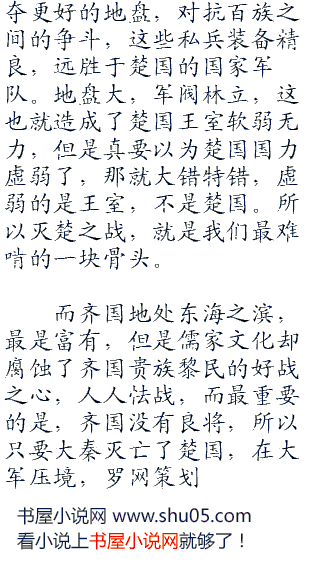 夺更好的地盘，对抗百族之
间的争斗，这些私兵装备精
良，远胜于楚国的国家军
队。地盘大，军阀林立，这
也就造成了楚国王室软弱无
力，但是真要以为楚国国力
虚弱了，那就大错特错，虚
弱的是王室，不是楚国。所
以灭楚之战，就是我们最难
啃的一块骨头。
而齐国地处东海之滨，
最是富有，但是儒家文化却
腐蚀了齐国贵族黎民的好战
之心，人人怯战，而最重要
的是，齐国没有良将，所以
只要大秦灭亡了楚国，在大
军压境，罗网策划
书屋小说网 www.shu05.com
看小说上书屋小说网就够了！